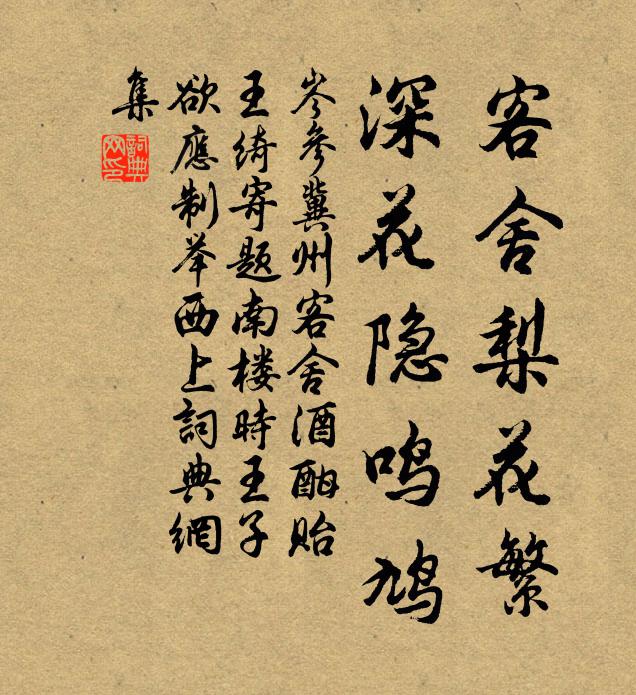 客舍梨花繁
深花隐鸣鸠
岑参冀州客舍酒酣贻
王绮寄题南楼時王子
欲應制举西上詞典網
集
詞典网印